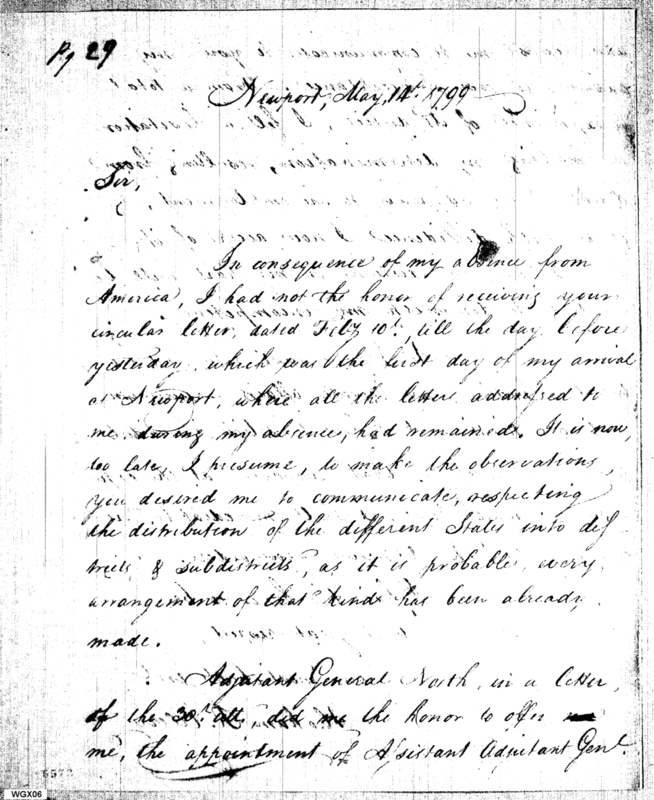 Pg 29
Newport, May, 14th. 1799
Sir,
In consequence of my absence from
America, I had not the honor of receiving your
circular letter, dated Feby 10th., till the day before
yesterday, which was the first day of my arrival
at Newport, where all the letters addressed to
me during my absence, had remained. It is now,
too late, I presume, to make the observations,
you desired me to communicate, respecting
the distribution of the different States into dis
tricts & subdistricts, as it is probable, every
arrangement of that kind has been already
made.
Adjutant General North, in a letter,
of the 30th. ult., did me the honor to offer
me, the appointment of Assistant Adjutant Genl.
6573
WGX06